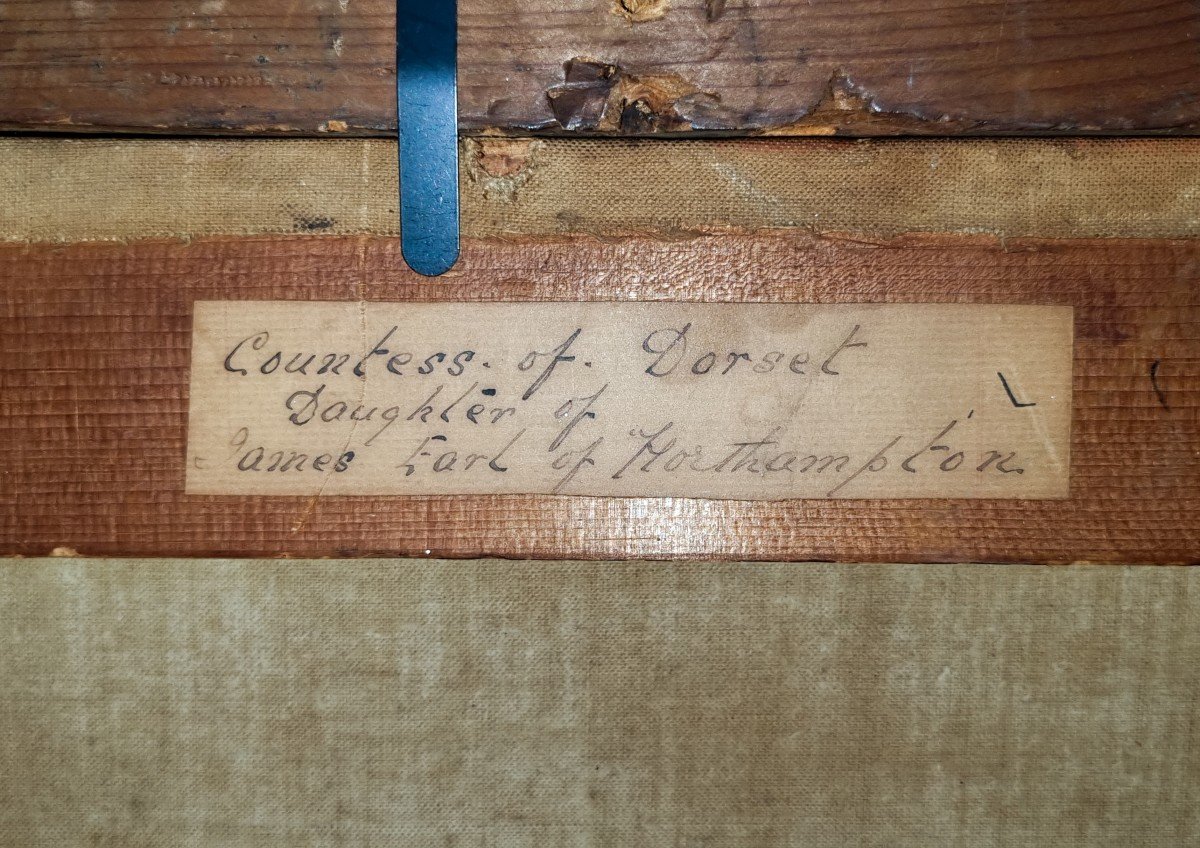 Countess. of. Dorset
Daughter of
James Earl of Northampton